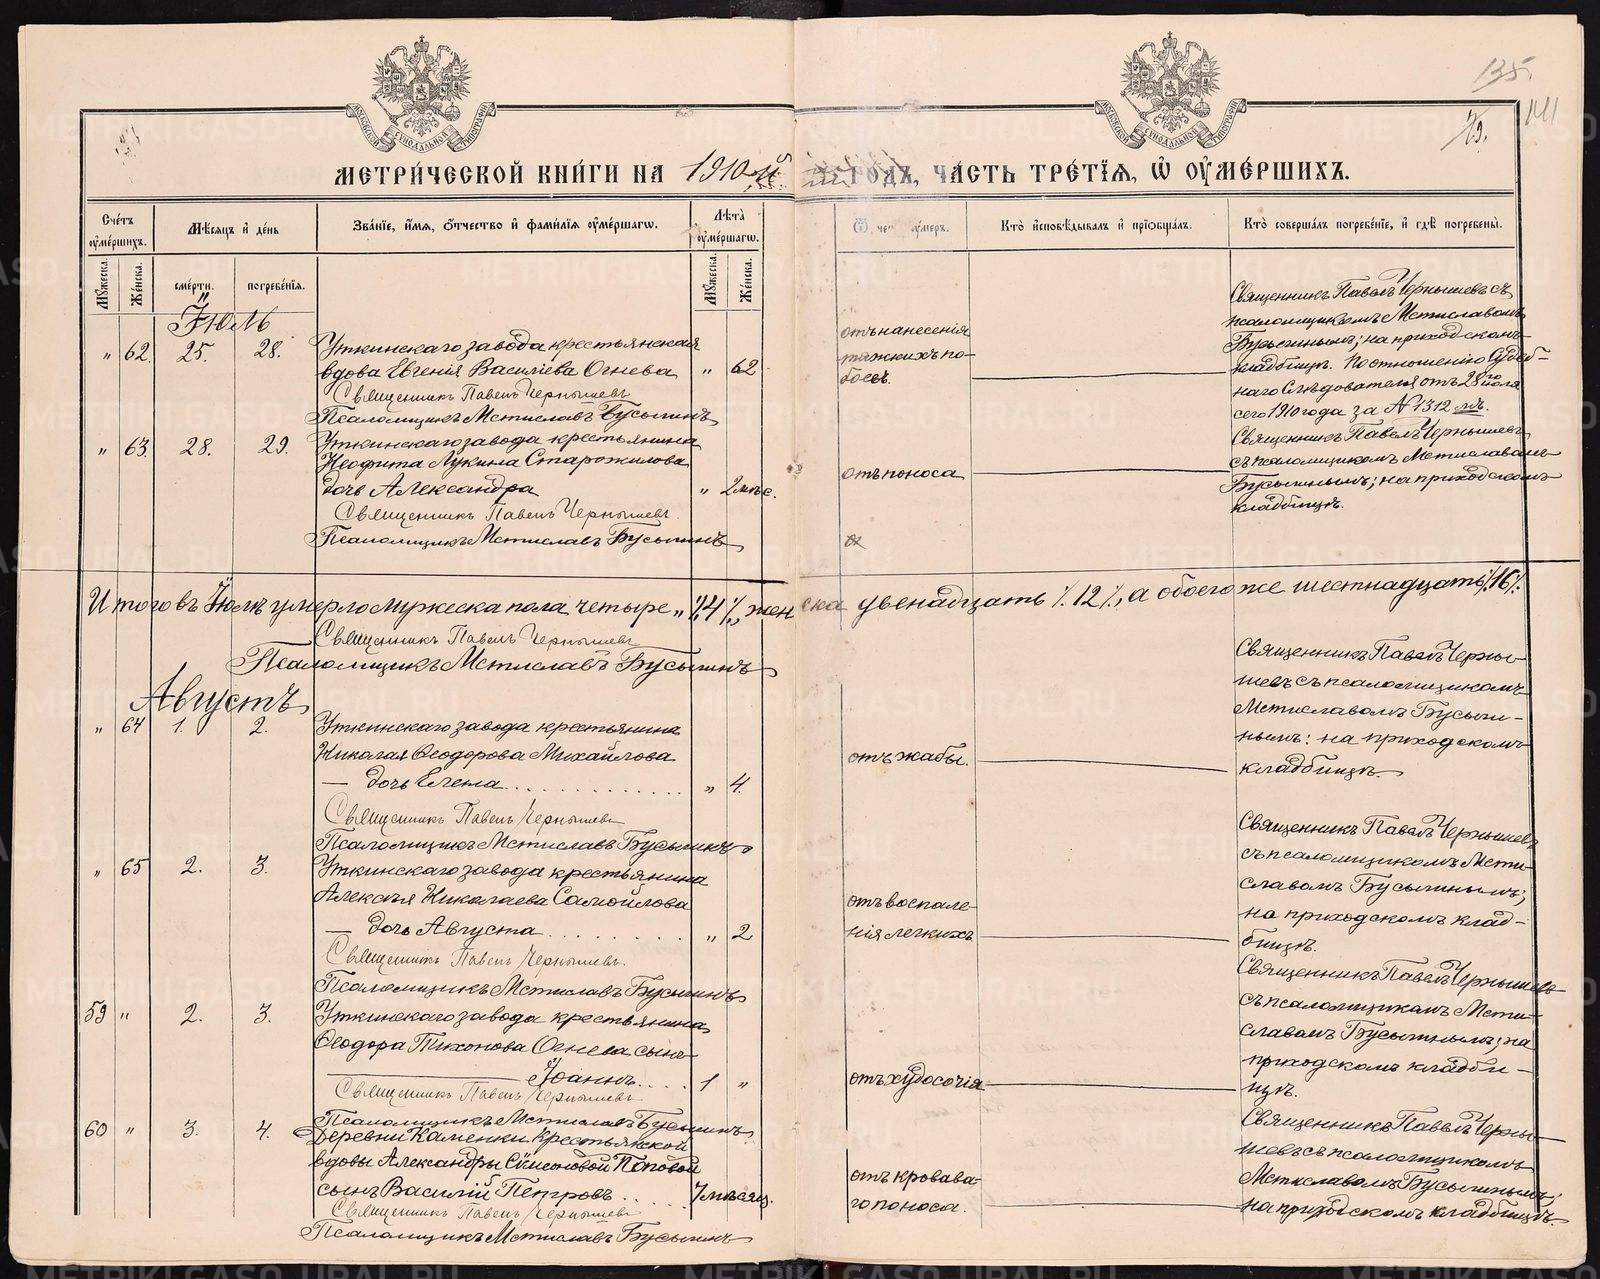 135.
141
79.
МОСКОВСКОЙ СѴНОДАЛЬНОЙ ТИПОГРАФІИ
МОСКОВСКОЙ СѴНОДАЛЬНОЙ ТИПОГРАФІИ
МЕТРИ́ЧЕСКОЙ КНИ́ГИ НА 1910-й ГОДЪ, ЧА́СТЬ ТРЕ́ТІЯ, Ѡ ОУМЕ́РШИХЪ.
Сче́тъ оуме́ршихъ.
Мѣ́сяцъ и де́нь
Зва́нїе, и́мя, о́тчество и фами́лїя оуме́ршагѡ.
Лѣ́та оуме́ршагѡ.
Ѿ чегѡ̀ оу́меръ.
Кто̀ и҆сповѣ́дывалъ и҆ прїѡбща́лъ.
Кто̀ соверша́лъ погребе́нїе, и҆ гдѣ̀ погребены̀.
Му́жеска.
Же́нска.
сме́рти.
погребе́нїя.
Му́жеска.
Же́нска.
Іюль
„ 62. 25. 28. Уткинскаго завода крестьянская
вдова Евгенія Василіева Огнева „ 62
Священникъ Павелъ Чернышевъ
Псаломщикъ Мстиславъ Бусыгинъ
отъ нанесенія
тяжкихъ по-
боевъ.
Священникъ Павелъ Чернышевъ съ
псаломщикомъ Мстиславомъ
Бусыгинымъ; на приходскомъ
кладбищѣ. По отношенію Судеб-
наго Слѣдователя отъ 28го іюля
сего 1910 года за № 1312мъ.
„ 63. 28. 29. Уткинскаго завода крестьянина
Неофита Лукина Старожилова
дочь Александра „ 2 мѣс.
Священникъ Павелъ Чернышевъ.
Псаломщикъ Мстиславъ Бусыгинъ
отъ поноса
Священникъ Павелъ Чернышевъ
съ псаломщикомъ Мстиславомъ
Бусыгинымъ; на приходскомъ
кладбищѣ.
Итого въ Іюлѣ умерло мужеска пола четыре „ ./.4 ./., женска двенадцать ./. 12 ./., а обоего же шестнадцать ./. 16 ./.
Священникъ Павелъ Чернышевъ
Псаломщикъ Мстиславъ Бусыгинъ
Августъ
„ 64 1. 2. Уткинскаго завода крестьянина
Николая Ѳеодорова Михайлова
— дочь Елена „ 4.
Священникъ Павелъ Чернышевъ
Псаломщикъ Мстиславъ Бусыгинъ
отъ жабы.
Священникъ Павелъ Черны-
шевъ съ псаломщикомъ
Мстиславомъ Бусыги-
нымъ: на приходскомъ
кладбищѣ.
„ 65 2. 3. Уткинскаго завода крестьянина
Алексѣя Николаева Самойлова
— дочь Августа „ 2
Священникъ Павелъ Чернышевъ.
Псаломщикъ Мстиславъ Бусыгинъ
отъ воспале-
нія легкихъ
Священникъ Павелъ Чернышевъ
съ псаломщикомъ Мсти-
славомъ Бусыгинымъ;
на приходскомъ клад-
бищѣ.
59 „ 2. 3. Уткинскаго завода крестьянина
Ѳеодора Тихонова Огнева сынъ
Іоаннъ 1 „
Священникъ Павелъ Чернышевъ
Псаломщикъ Мстиславъ Бусыгинъ
отъ худосочія
Священникъ Павелъ Чернышевъ
съ псаломщикомъ Мсти-
славомъ Бусыгинымъ; на
приходскомъ кладби-
щѣ.
60 „ 3. 4. Деревни Каменки крестьянской
вдовы Александры Симеоновой Поповой
сынъ Василій Петровъ 7 мѣсяц.
Священникъ Павелъ Чернышевъ
Псаломщикъ Мстиславъ Бусыгинъ
отъ кровава-
го поноса.
Священникъ Павелъ Черны-
шевъ съ псаломщикомъ
Мстиславомъ Бусыгинымъ;
на приходскомъ кладбищѣ.
METRIKI.GASO-URAL.RU